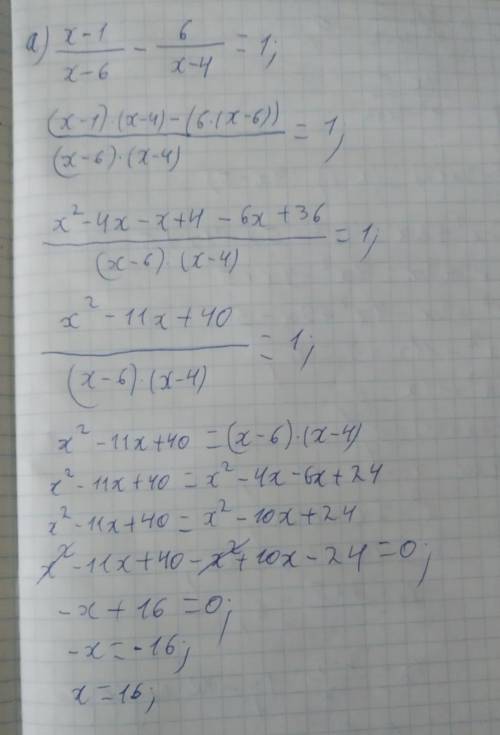 а) (x-1)/(x-6) - 6/(x-4) = 1;
((x-1)·(x-4)-(6·(x-6)))/((x-6)·(x-4)) = 1;
(x²-4x-x+4-6x+36)/((x-6)·(x-4)) = 1;
(x²-11x+40)/((x-6)·(x-4)) = 1;
x²-11x+40=(x-6)·(x-4)
x²-11x+40=x²-4x-6x+24
x²-11x+40=x²-10x+24
x²-11x+40-x²+10x-24=0;
-x+16=0;
-x=-16;
x=16;